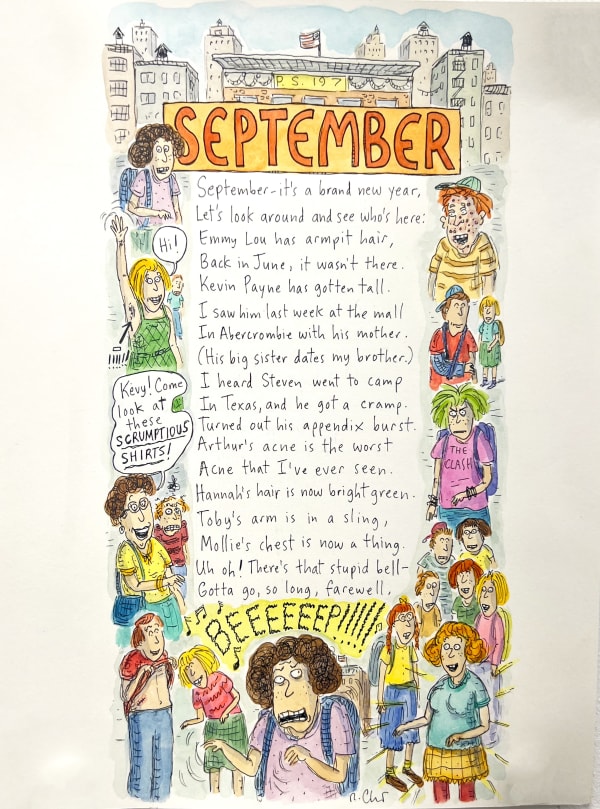 P.S. 197
SEPTEMBER
September-it's a brand new year,
Let's look around and see who's here:
Emmy Lou has armpit hair,
Back in June, it wasn't there.
Kevin Payne has gotten tall.
I saw him last week at the mall
In Abercrombie with his mother.
(His big sister dates my brother.)
I heard Steven went to camp
In Texas, and he got a cramp.
Turned out his appendix burst.
Arthur's acne is the worst
Acne that I've ever seen.
Hannah's hair is now bright green.
Toby's arm is in a sling,
Mollie's chest is now a thing.
Uh oh! There's that stupid bell-
Gotta go, so long, farewell,
Hi!
!!!!!
Kevy! Come
look at
these
SCRUMPTIOUS
SHIRTS!
THE
CLASH
BEEEEEEP!!!!!!
R. Chst